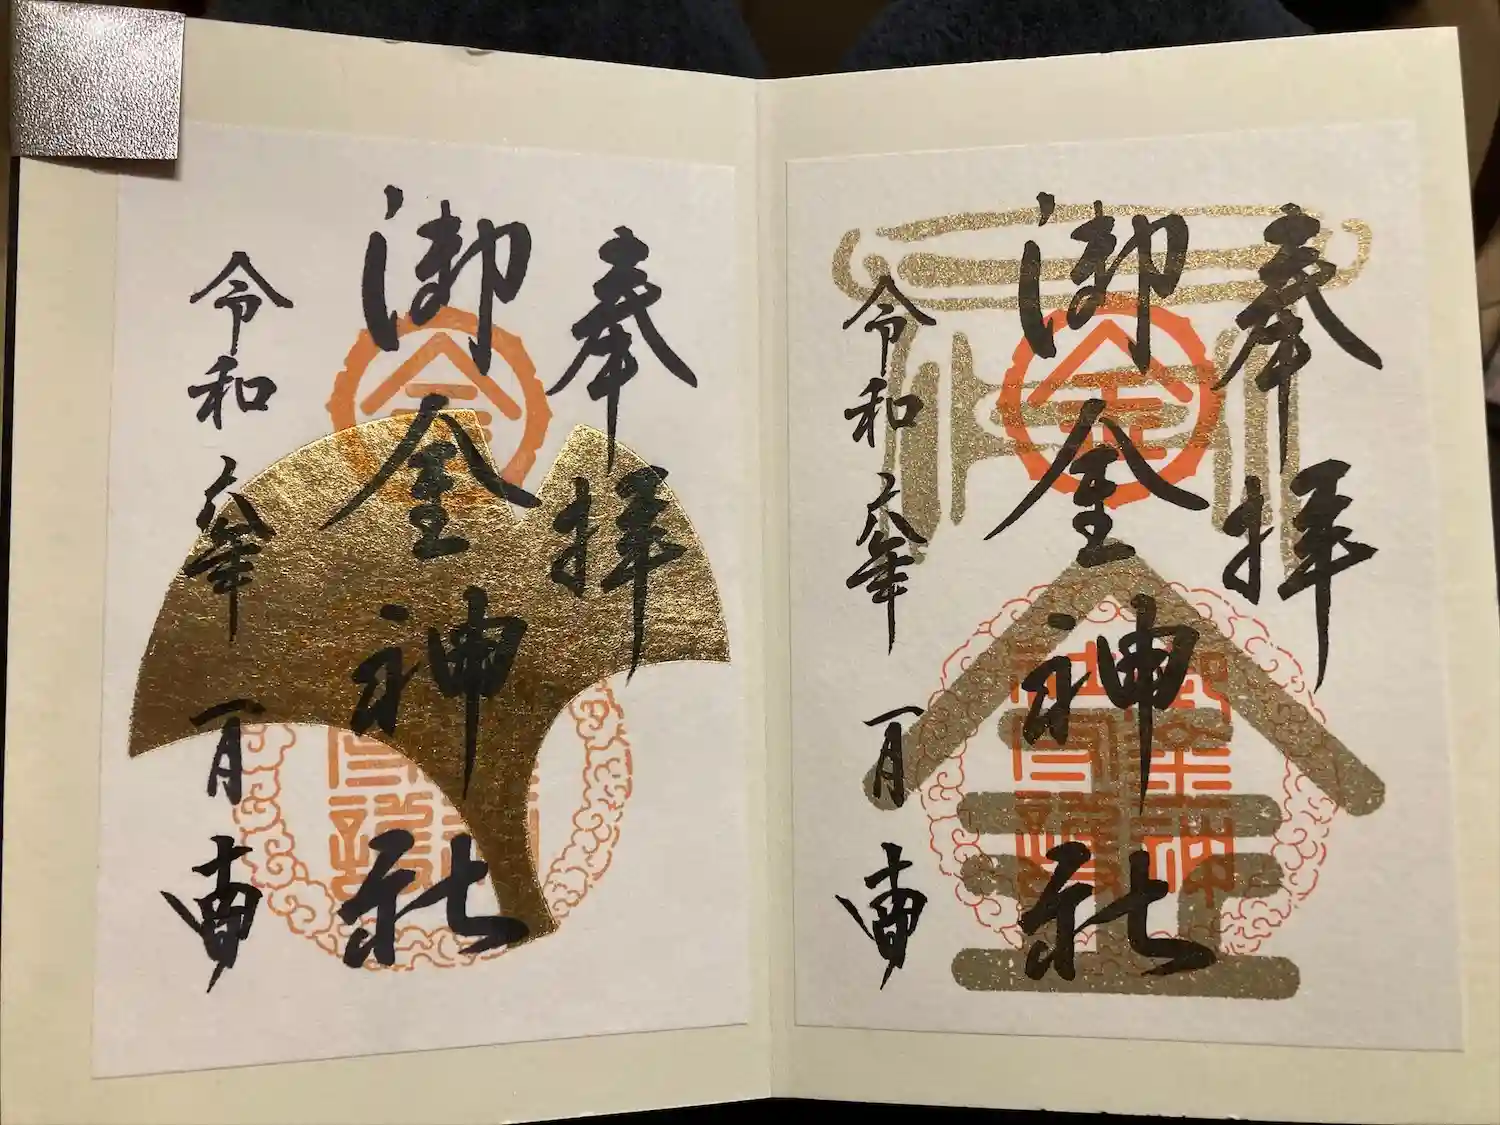 奉拝
御金神社
令和六年一月
奉拝
御金神社
令和六年一月